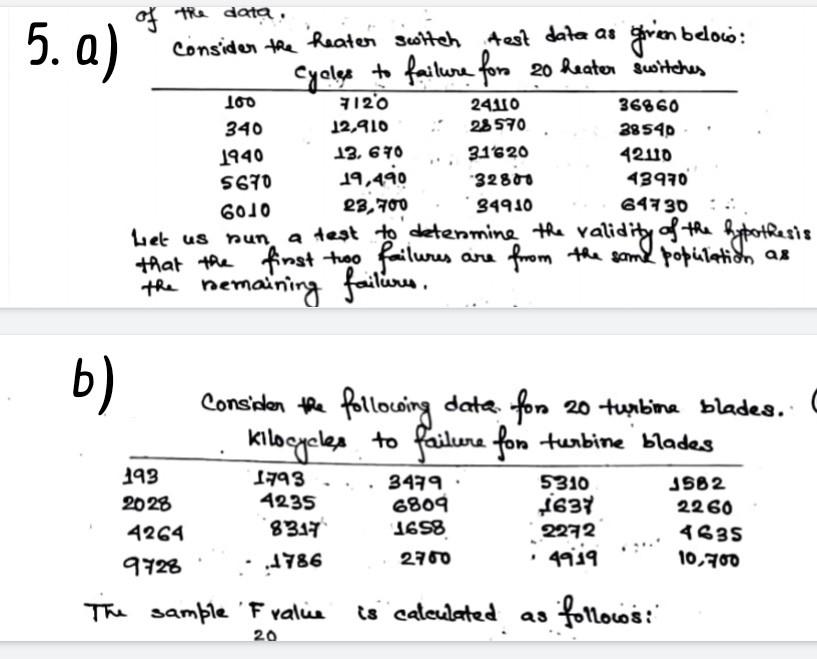 of the data.
5. a)
Consider the heater switch test data as given below:
Cycles to failure for 20 heater switches
100 7120 24110 36860
340 12,910 28570 38540
1940 13,670 31620 42110
5670 19,490 32800 43970
6010 23,700 34910 64730
Let us run a test to determine the validity of the hypothesis
that the first two failures are from the same population as
the remaining failures.
b)
Consider the following data for 20 turbine blades. (
Kilocycles to failure for turbine blades
193 1793 3479 5310 1582
2028 4235 6809 1637 2260
4264 8317 1658 2272 4635
9728 1786 2700 4919 10,700
The sample F value is calculated as follows:
20